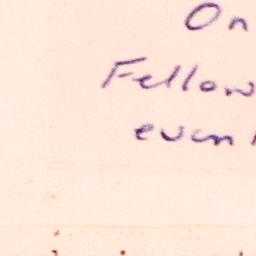 On
Fellow
even